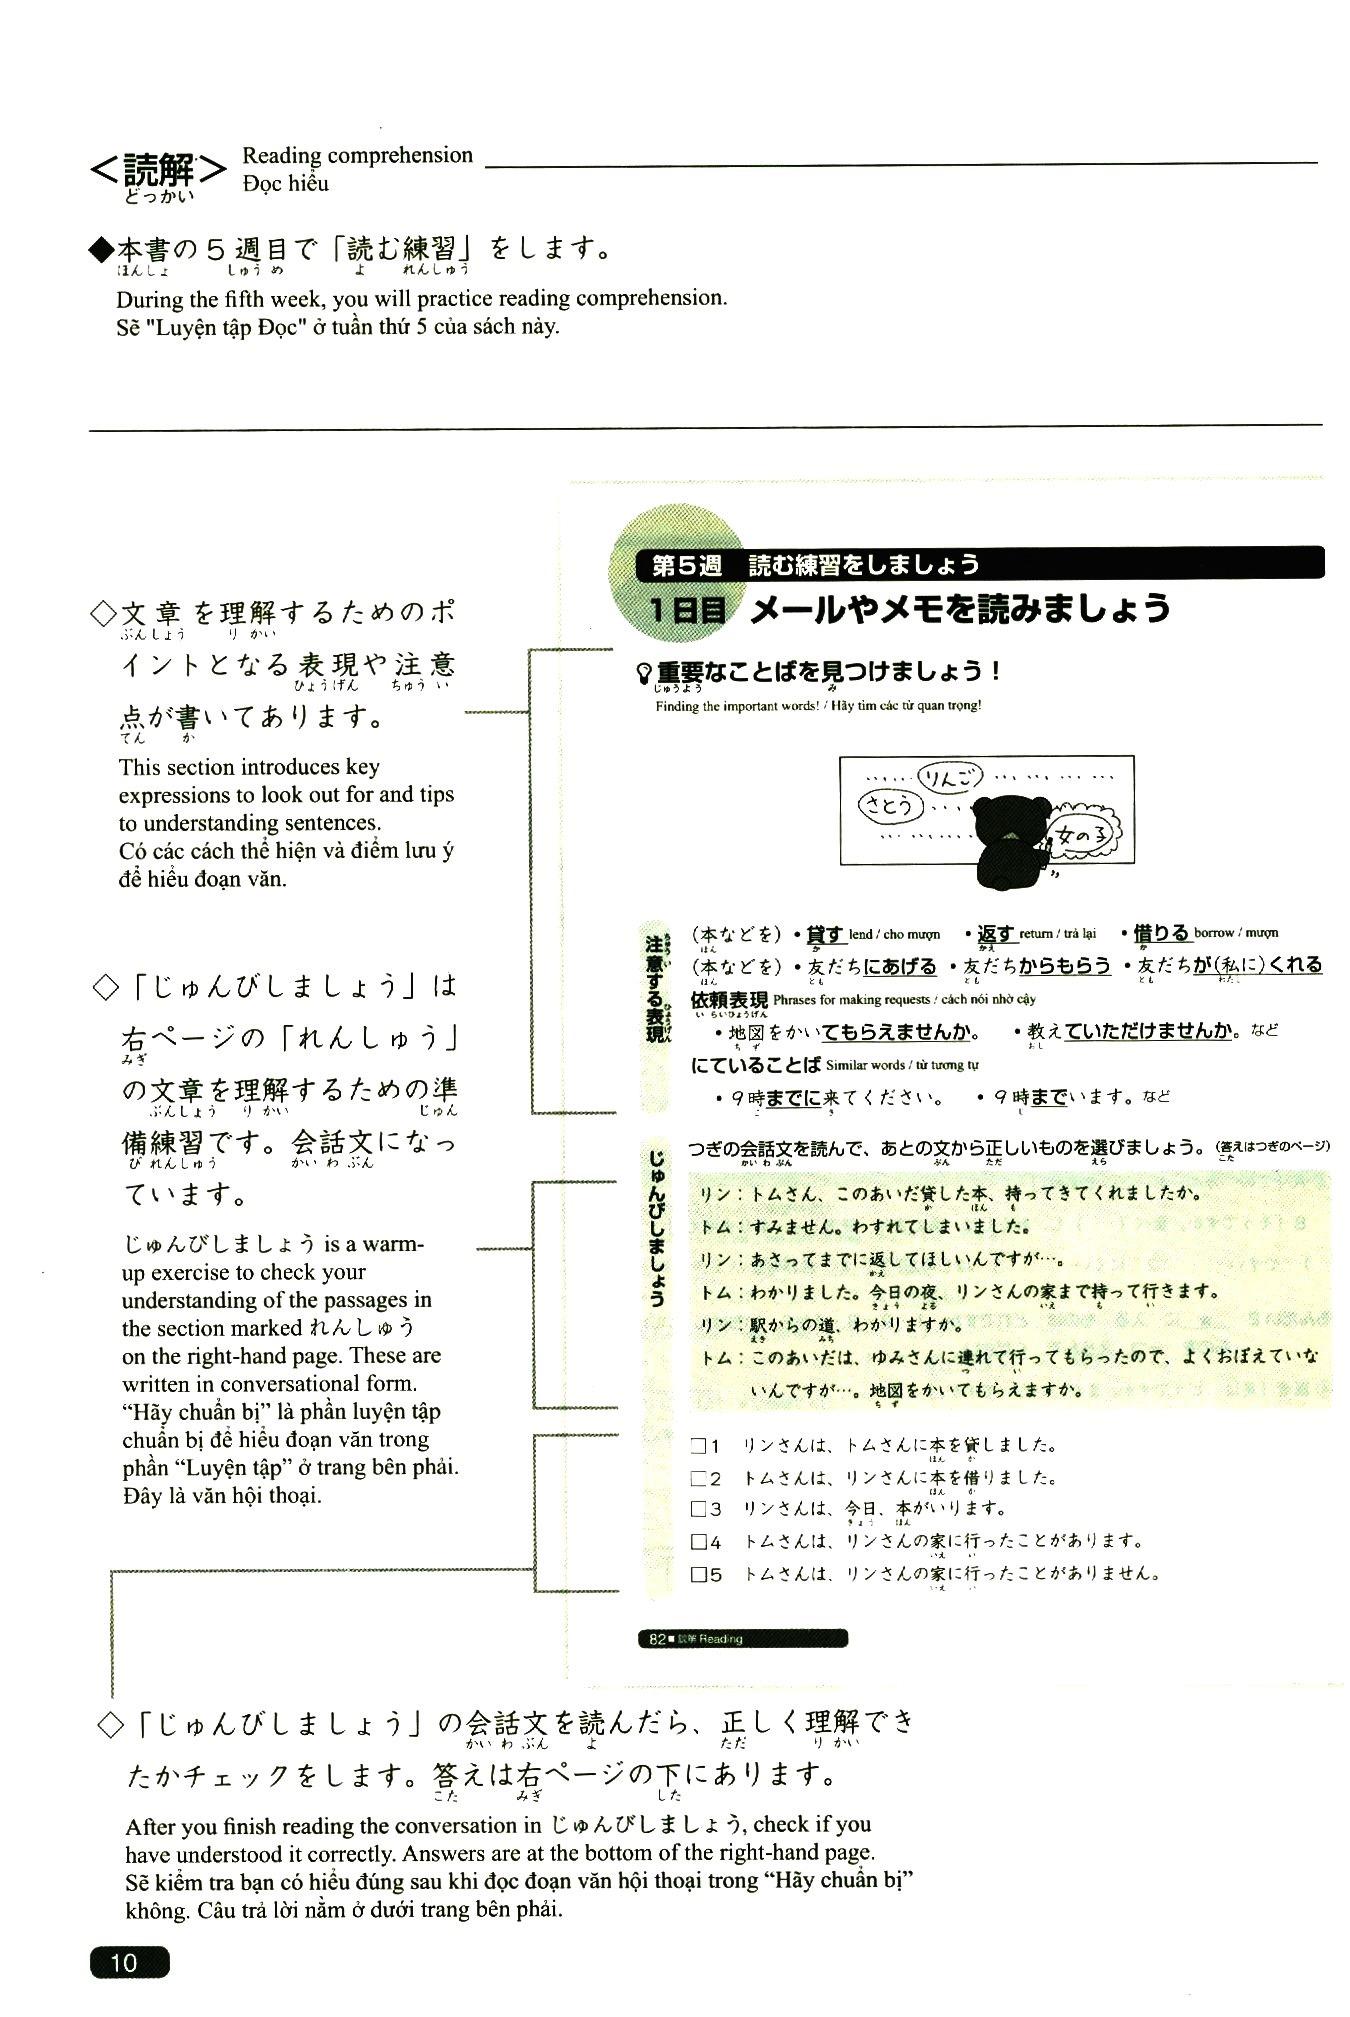 ＜読解＞ Reading comprehension
どっかい Đọc hiểu
◆本書の５週目で「読む練習」をします。
ほんしょ しゅう め よ れんしゅう
During the fifth week, you will practice reading comprehension.
Sẽ "Luyện tập Đọc" ở tuần thứ 5 của sách này.
◇文章を理解するためのポ
ぶんしょう り かい
イントとなる表現や注意
ひょうげん ちゅう い
点が書いてあります。
てん か
This section introduces key
expressions to look out for and tips
to understanding sentences.
Có các cách thể hiện và điểm lưu ý
để hiểu đoạn văn.
◇「じゅんびしましょう」は
右ページの「れんしゅう」
みぎ
の文章を理解するための準
ぶんしょう り かい じゅん
備練習です。会話文になっ
び れんしゅう かい わ ぶん
ています。
じゅんびしましょう is a warm-
up exercise to check your
understanding of the passages in
the section marked れんしゅう
on the right-hand page. These are
written in conversational form.
“Hãy chuẩn bị” là phần luyện tập
chuẩn bị để hiểu đoạn văn trong
phần “Luyện tập” ở trang bên phải.
Đây là văn hội thoại.
第５週 読む練習をしましょう
１日目 メールやメモを読みましょう
重要なことばを見つけましょう！
じゅうよう み
Finding the important words! / Hãy tìm các từ quan trọng!
…… りんご … … … …
さとう ・・・
・・・ ・・・ 女の子
注意する表現
ちゅうい ひょうげん
（本などを）・貸す lend / cho mượn ・返す return / trả lại ・借りる borrow / mượn
ほん か かえ か
（本などを）・友だちにあげる ・友だちからもらう ・友だちが（私に）くれる
ほん とも とも とも わたし
依頼表現 Phrases for making requests / cách nói nhờ cậy
い らいひょうげん
・地図をかいてもらえませんか。 ・教えていただけませんか。など
ち ず おし
にていることば Similar words / từ tương tự
・９時までに来てください。 ・９時までいます。など
じ き じ
じゅんびしましょう
つぎの会話文を読んで、あとの文から正しいものを選びましょう。（答えはつぎのページ）
かい わ ぶん ぶん ただ えら こた
リン：トムさん、このあいだ貸した本、持ってきてくれましたか。
か ほん も
トム：すみません。わすれてしまいました。
リン：あさってまでに返してほしいんですが…。
かえ
トム：わかりました。今日の夜、リンさんの家まで持って行きます。
きょう よる いえ も い
リン：駅からの道、わかりますか。
えき みち
トム：このあいだは、ゆみさんに連れて行ってもらったので、よくおぼえていな
つ い
いんですが…。地図をかいてもらえますか。
ち ず
□1 リンさんは、トムさんに本を貸しました。
ほん か
□2 トムさんは、リンさんに本を借りました。
ほん か
□3 リンさんは、今日、本がいります。
きょう ほん
□4 トムさんは、リンさんの家に行ったことがあります。
いえ い
□5 トムさんは、リンさんの家に行ったことがありません。
いえ い
82■読解 Reading
◇「じゅんびしましょう」の会話文を読んだら、正しく理解でき
かい わ ぶん よ ただ り かい
たかチェックをします。答えは右ページの下にあります。
こた みぎ した
After you finish reading the conversation in じゅんびしましょう, check if you
have understood it correctly. Answers are at the bottom of the right-hand page.
Sẽ kiểm tra bạn có hiểu đúng sau khi đọc đoạn văn hội thoại trong “Hãy chuẩn bị”
không. Câu trả lời nằm ở dưới trang bên phải.
10